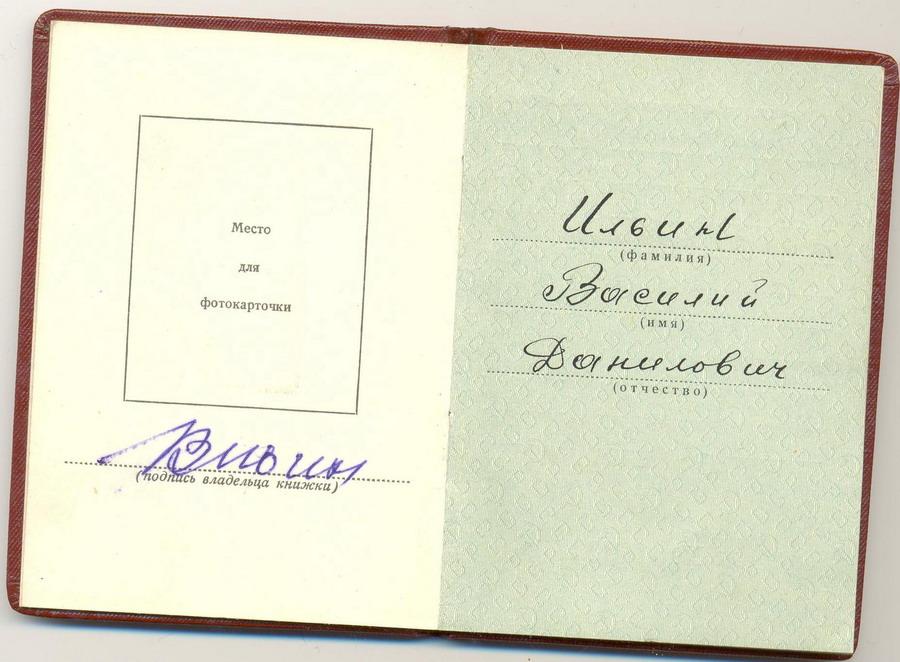 Место
для
фотокарточки
ВИльин
(подпись владельца книжки)
Ильин
(фамилия)
Василий
(имя)
Данилович
(отчество)